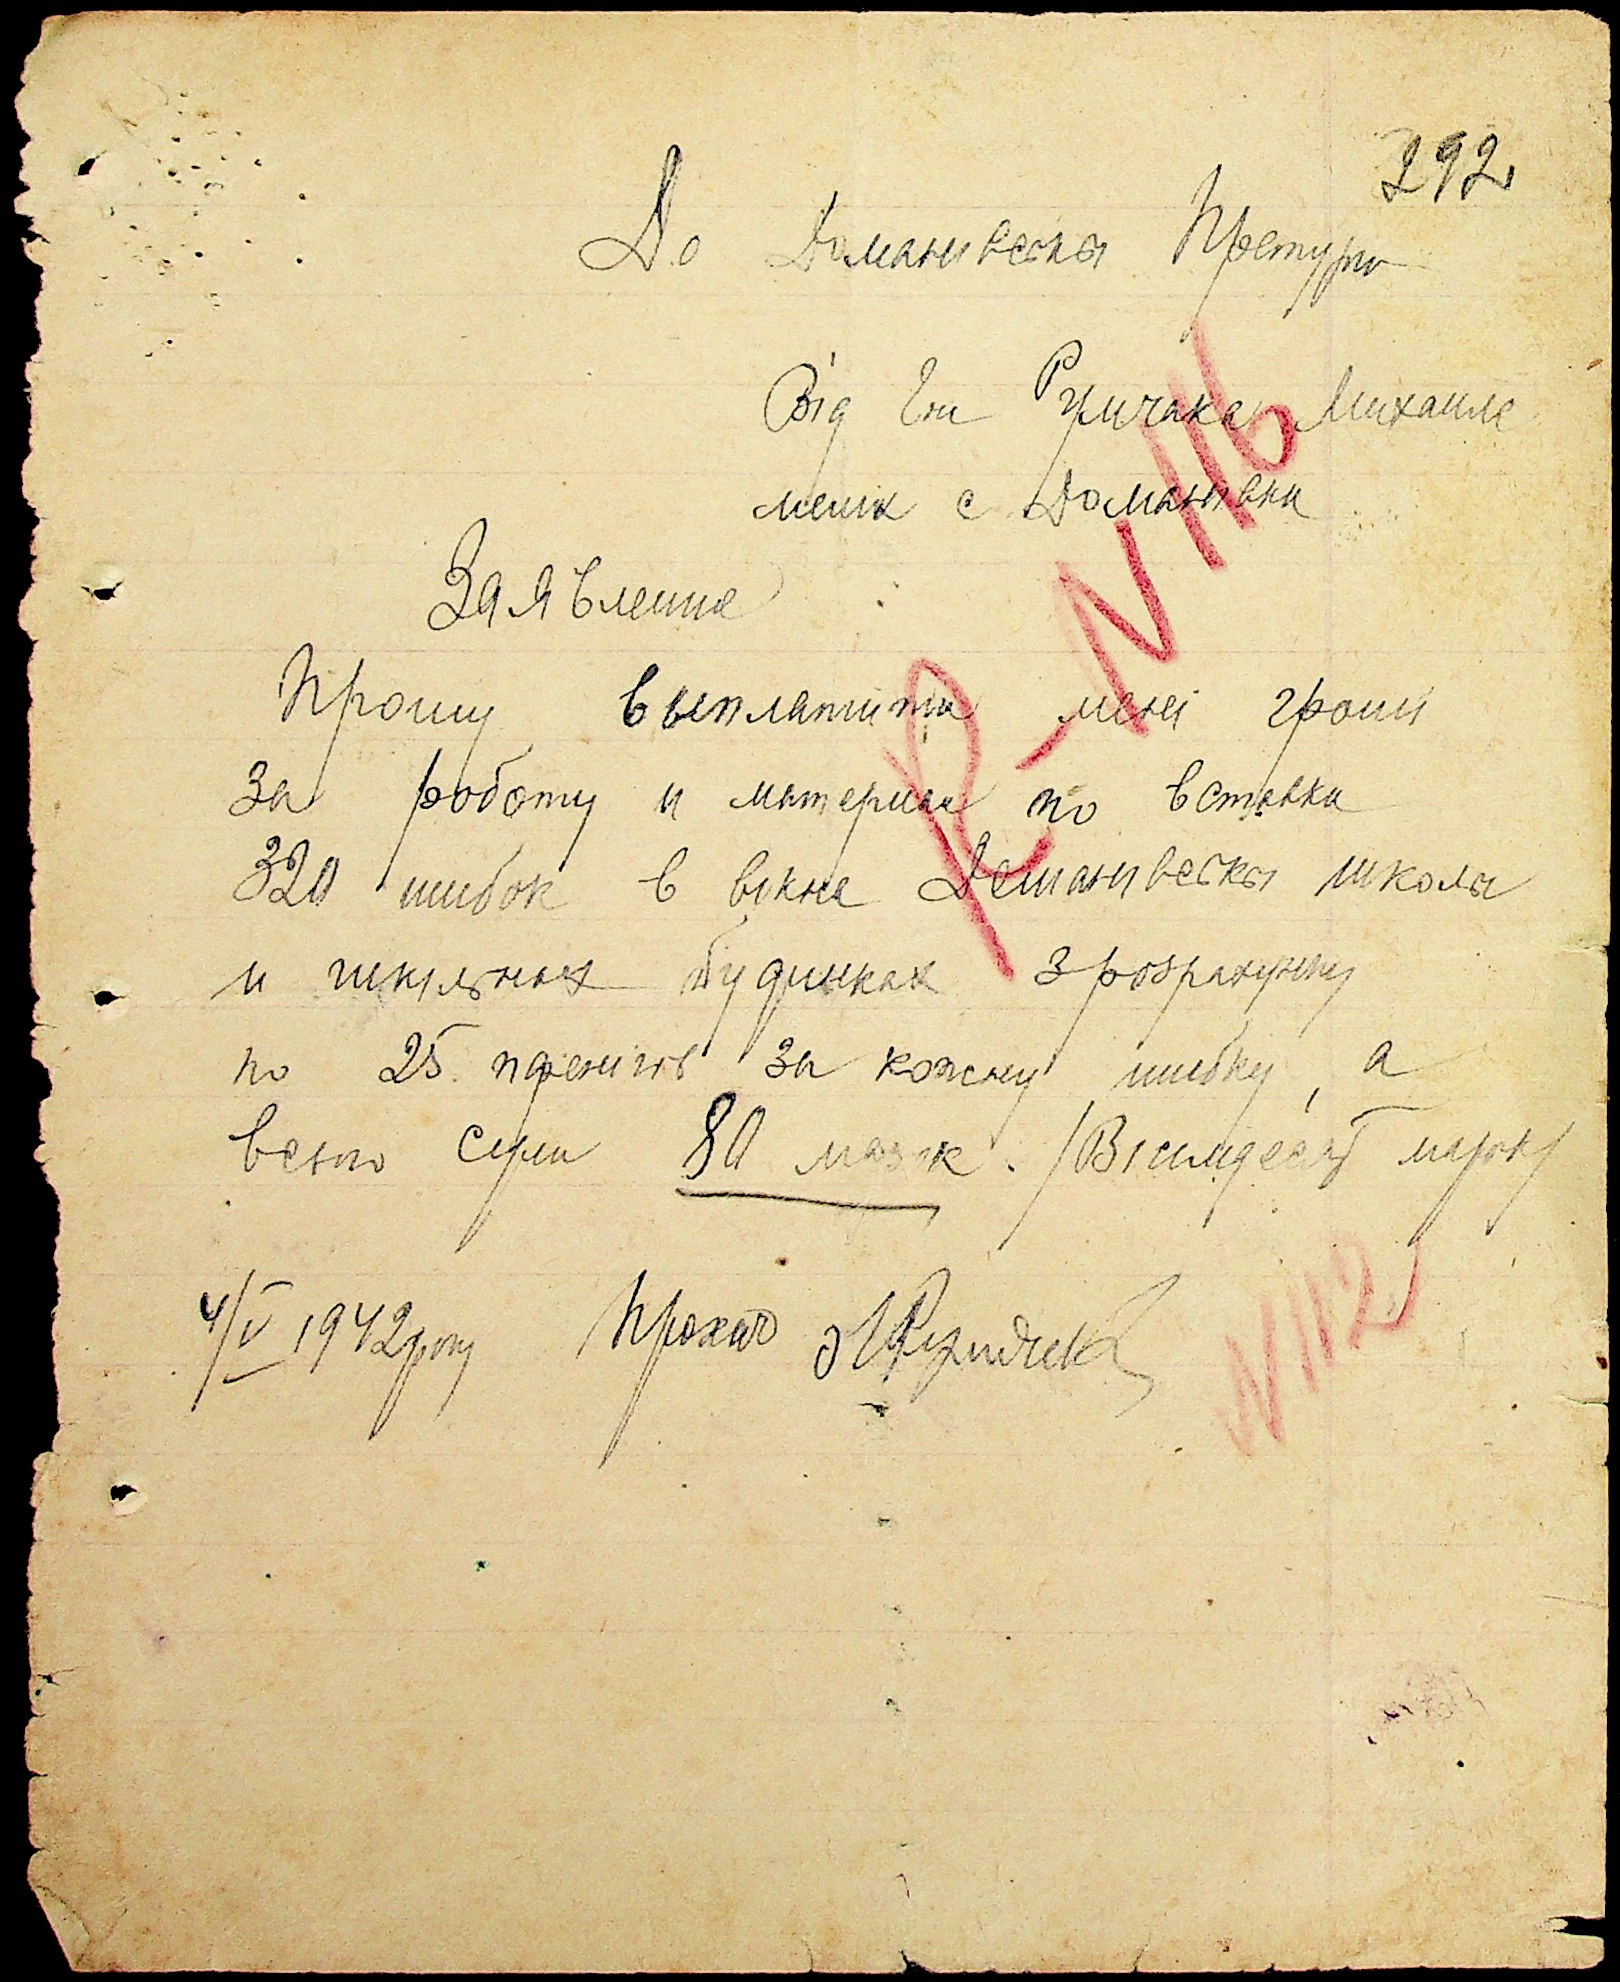 292
До Доманивскои Претури
Від Гна Румчака Михаиле
меш с Доманивки
Заявление
Прошу выплатити мені гроши
За роботу и материал по вставки
320 шибок в викна Доманивскои школы
и шкільных будинках з розрахунку
по 25 пфенігів за кожну шибку, а
всього суми 80 марок. /Вісимдесят марок/
4/V 1942 року Прохач
R-N 116
N 112